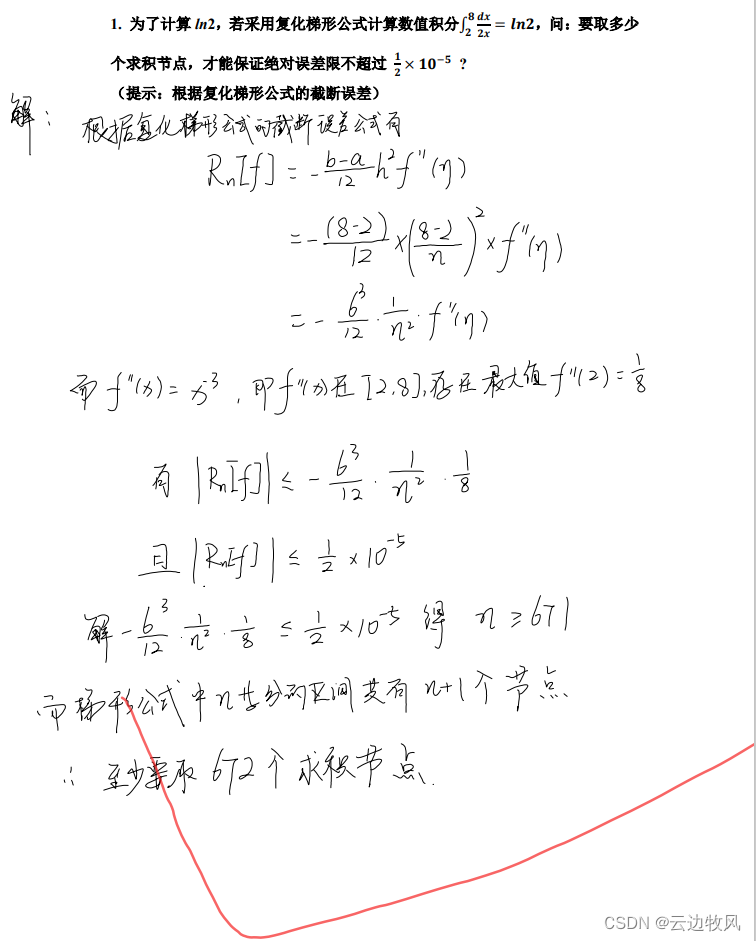 1. 为了计算 ln2，若采用复化梯形公式计算数值积分∫₂⁸ dx/2x = ln2，问：要取多少
个求积节点，才能保证绝对误差限不超过 1/2 × 10⁻⁵ ？
（提示：根据复化梯形公式的截断误差）
解： 根据复化梯形公式的截断误差公式有
Rₙ[f] = - b-a/12 h² f''(η)
= - (8-2)/12 × (8-2/n)² × f''(η)
= - 6³/12 · 1/n² · f''(η)
而 f''(x) = x⁻³ , 即 f''(x) 在 [2,8], 存在最大值 f''(2) = 1/8
有 |Rₙ[f]| ≤ - 6³/12 · 1/n² · 1/8
且 |Rₙ[f]| ≤ 1/2 × 10⁻⁵
解 - 6³/12 · 1/n² · 1/8 ≤ 1/2 × 10⁻⁵ 得 n ≥ 671
而梯形公式中 n 等分的区间共有 n+1 个节点
∴ 至少要取 672 个求积节点.
CSDN @云边牧风